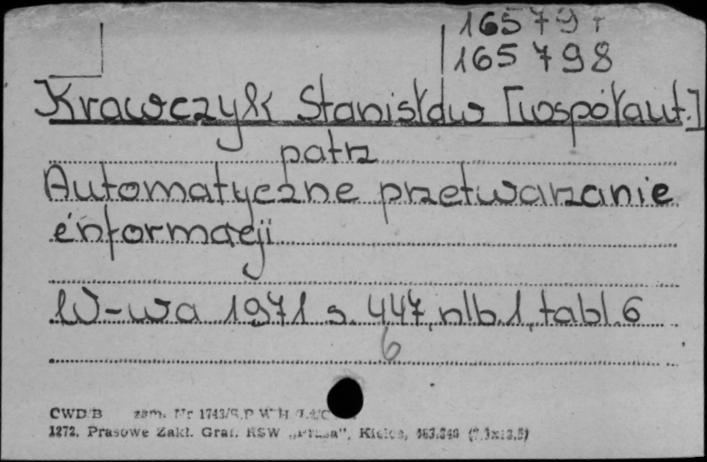 165798
Krawczyk Stanisław [współaut.]
patrz
Automatyczne przetwarzanie
informacji
W-wa 1971 s. 447, nlb. 1, tabl. 6
6
CWD/B zam. Nr 1743/S.P.W.H.
1272. Prasowe Zakł. Graf. RSW „Prasa”, Kielce,